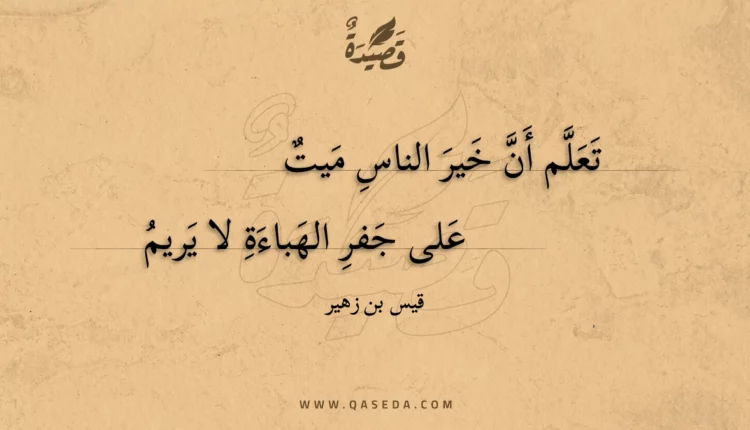 قَصِيْدَةٌ
تَعَلَّم أَنَّ خَيرَ الناسِ مَيتٌ
عَلى جَفرِ الهَباءَةِ لا يَريمُ
قيس بن زهير
WWW.QASEDA.COM